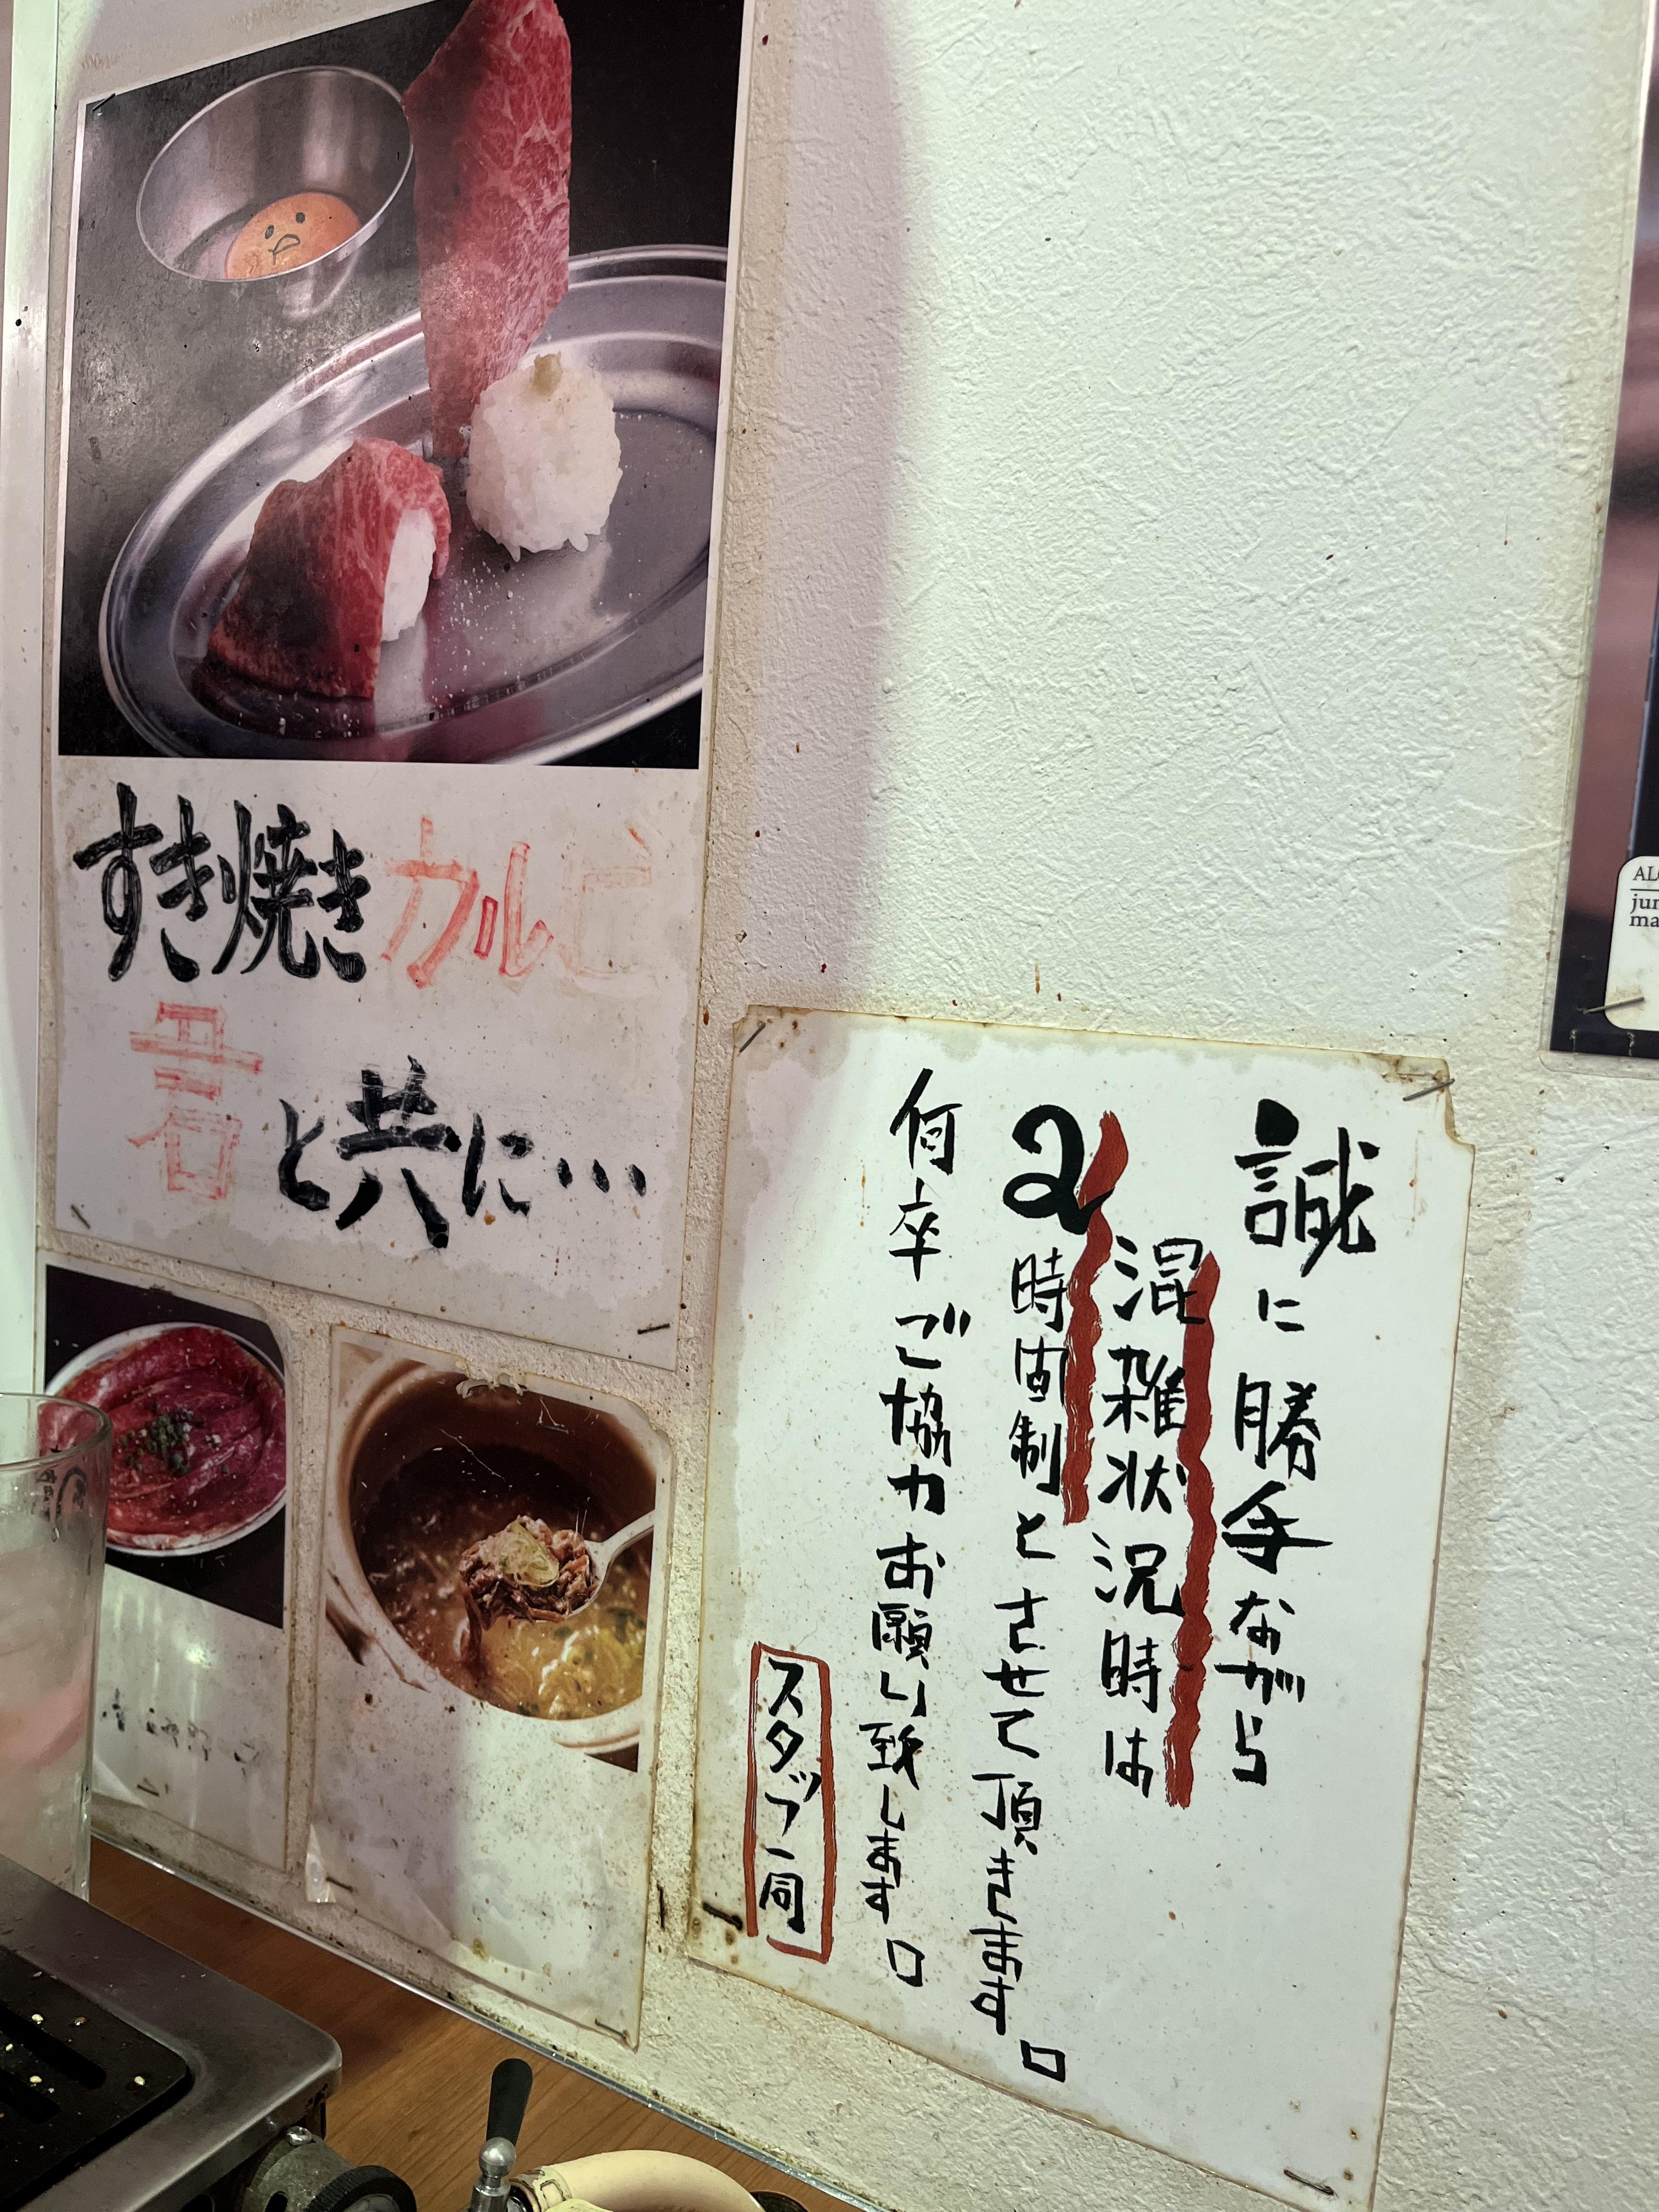 すき焼きカルビ
君と共に…
誠に勝手ながら
混雑状況時は
2時間制とさせて頂きます。
何卒ご協力お願い致します。
スタッフ一同